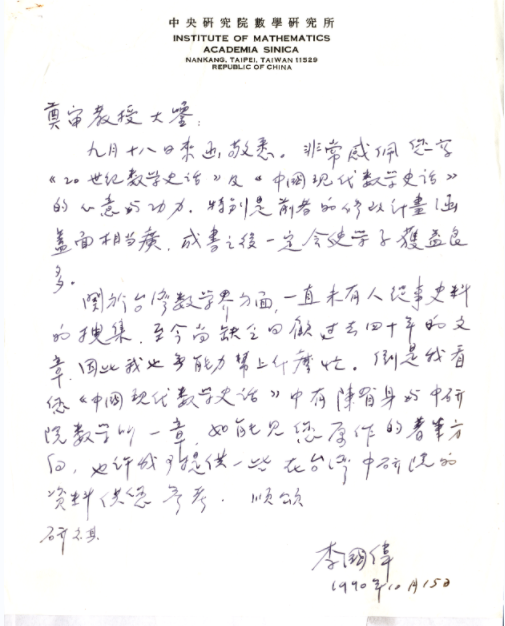 中央研究院數學研究所
INSTITUTE OF MATHEMATICS
ACADEMIA SINICA
NANKANG, TAIPEI, TAIWAN 11529
REPUBLIC OF CHINA
奠宙教授大鑒:
九月十八日來函敬悉。非常感佩您寫
《20世纪数学史话》及《中國现代数学史话》
的心意与功力。特別是前者的修改计畫涵
蓋面相当廣,成書之後一定令史学子獲益良
多。
関於台湾数学界方面,一直未有人從事史料
的搜集,至今尚缺乏回顧过去四十年的文
章,因此我也無能力幫上什麼忙。倒是我看
您《中國现代数学史话》中有陳省身与中研
院数学所一章,如能見您原作的著筆方
向,也许我可提供一些在台湾中研院的
资料供您參考。順頌
研祺
李國偉
1990年10月15日